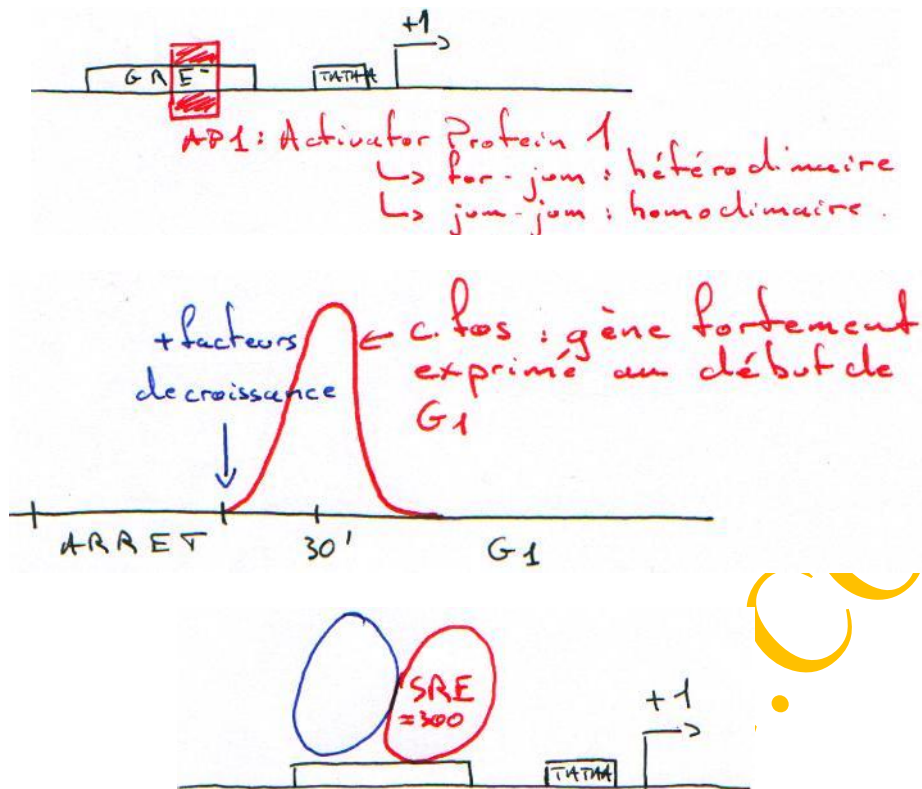 +1
G R E
TATAA
AP1: Activator Protein 1
↳ for-jum : hétérodimaire
↳ jum-jum : homodimaire.
+ facteurs
de croissance
← c.fos : gène fortement
exprimé au début de
G1
ARRET 30' G1
SRE
≈300
+1
TATAA